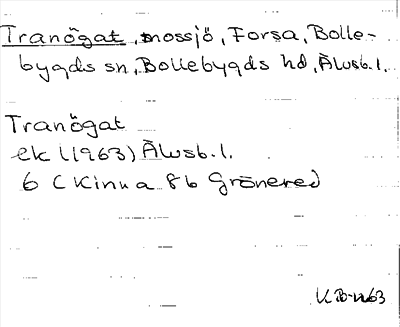 Tranögat, mossjö, Forsa, Bolle-
bygds sn, Bollebygds hd, Älvsb. l.
Tranögat
ek (1963) Älvsb. l.
6 C Kinna 8b Grönered